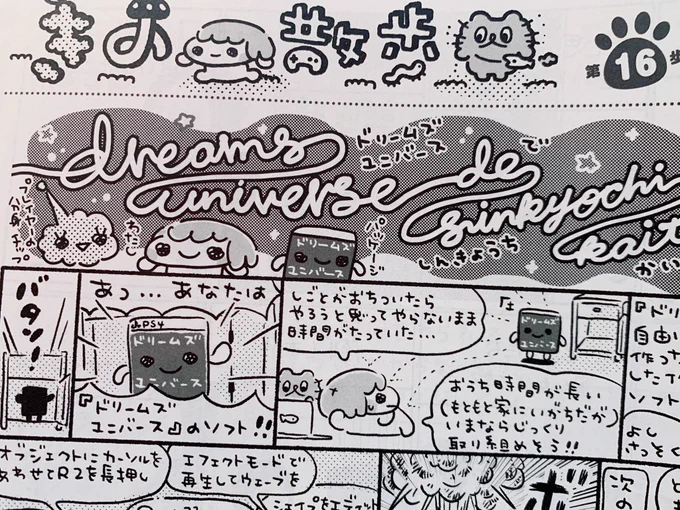 散歩
第16歩
dreams
universe de
sinkyochi
kait
ドリームズ
ユニバース
で
しんきょうち
かい
プレイヤーの
分身・チップ
わたし
パッケージ
ドリームズ
ユニバース
バタン!
あっ…あなたは
PS4
ドリームズ
ユニバース
『ドリームズ
ユニバース』のソフト!!
しごとがおちついたら
やろうと思ってやらないまま
時間がたっていた…
ドリームズ
ユニバース
おうち時間が長い
(もともと家にいがちだが)
いまならじっくり
取り組めそう!!
『ドリ
自由い
作っ
した
ソフト
よし
さっそく
オブジェクトにカーソルを
あわせてR2を長押し
エフェクトモードで
再生してウェーブを
シェイプをエディット
次の